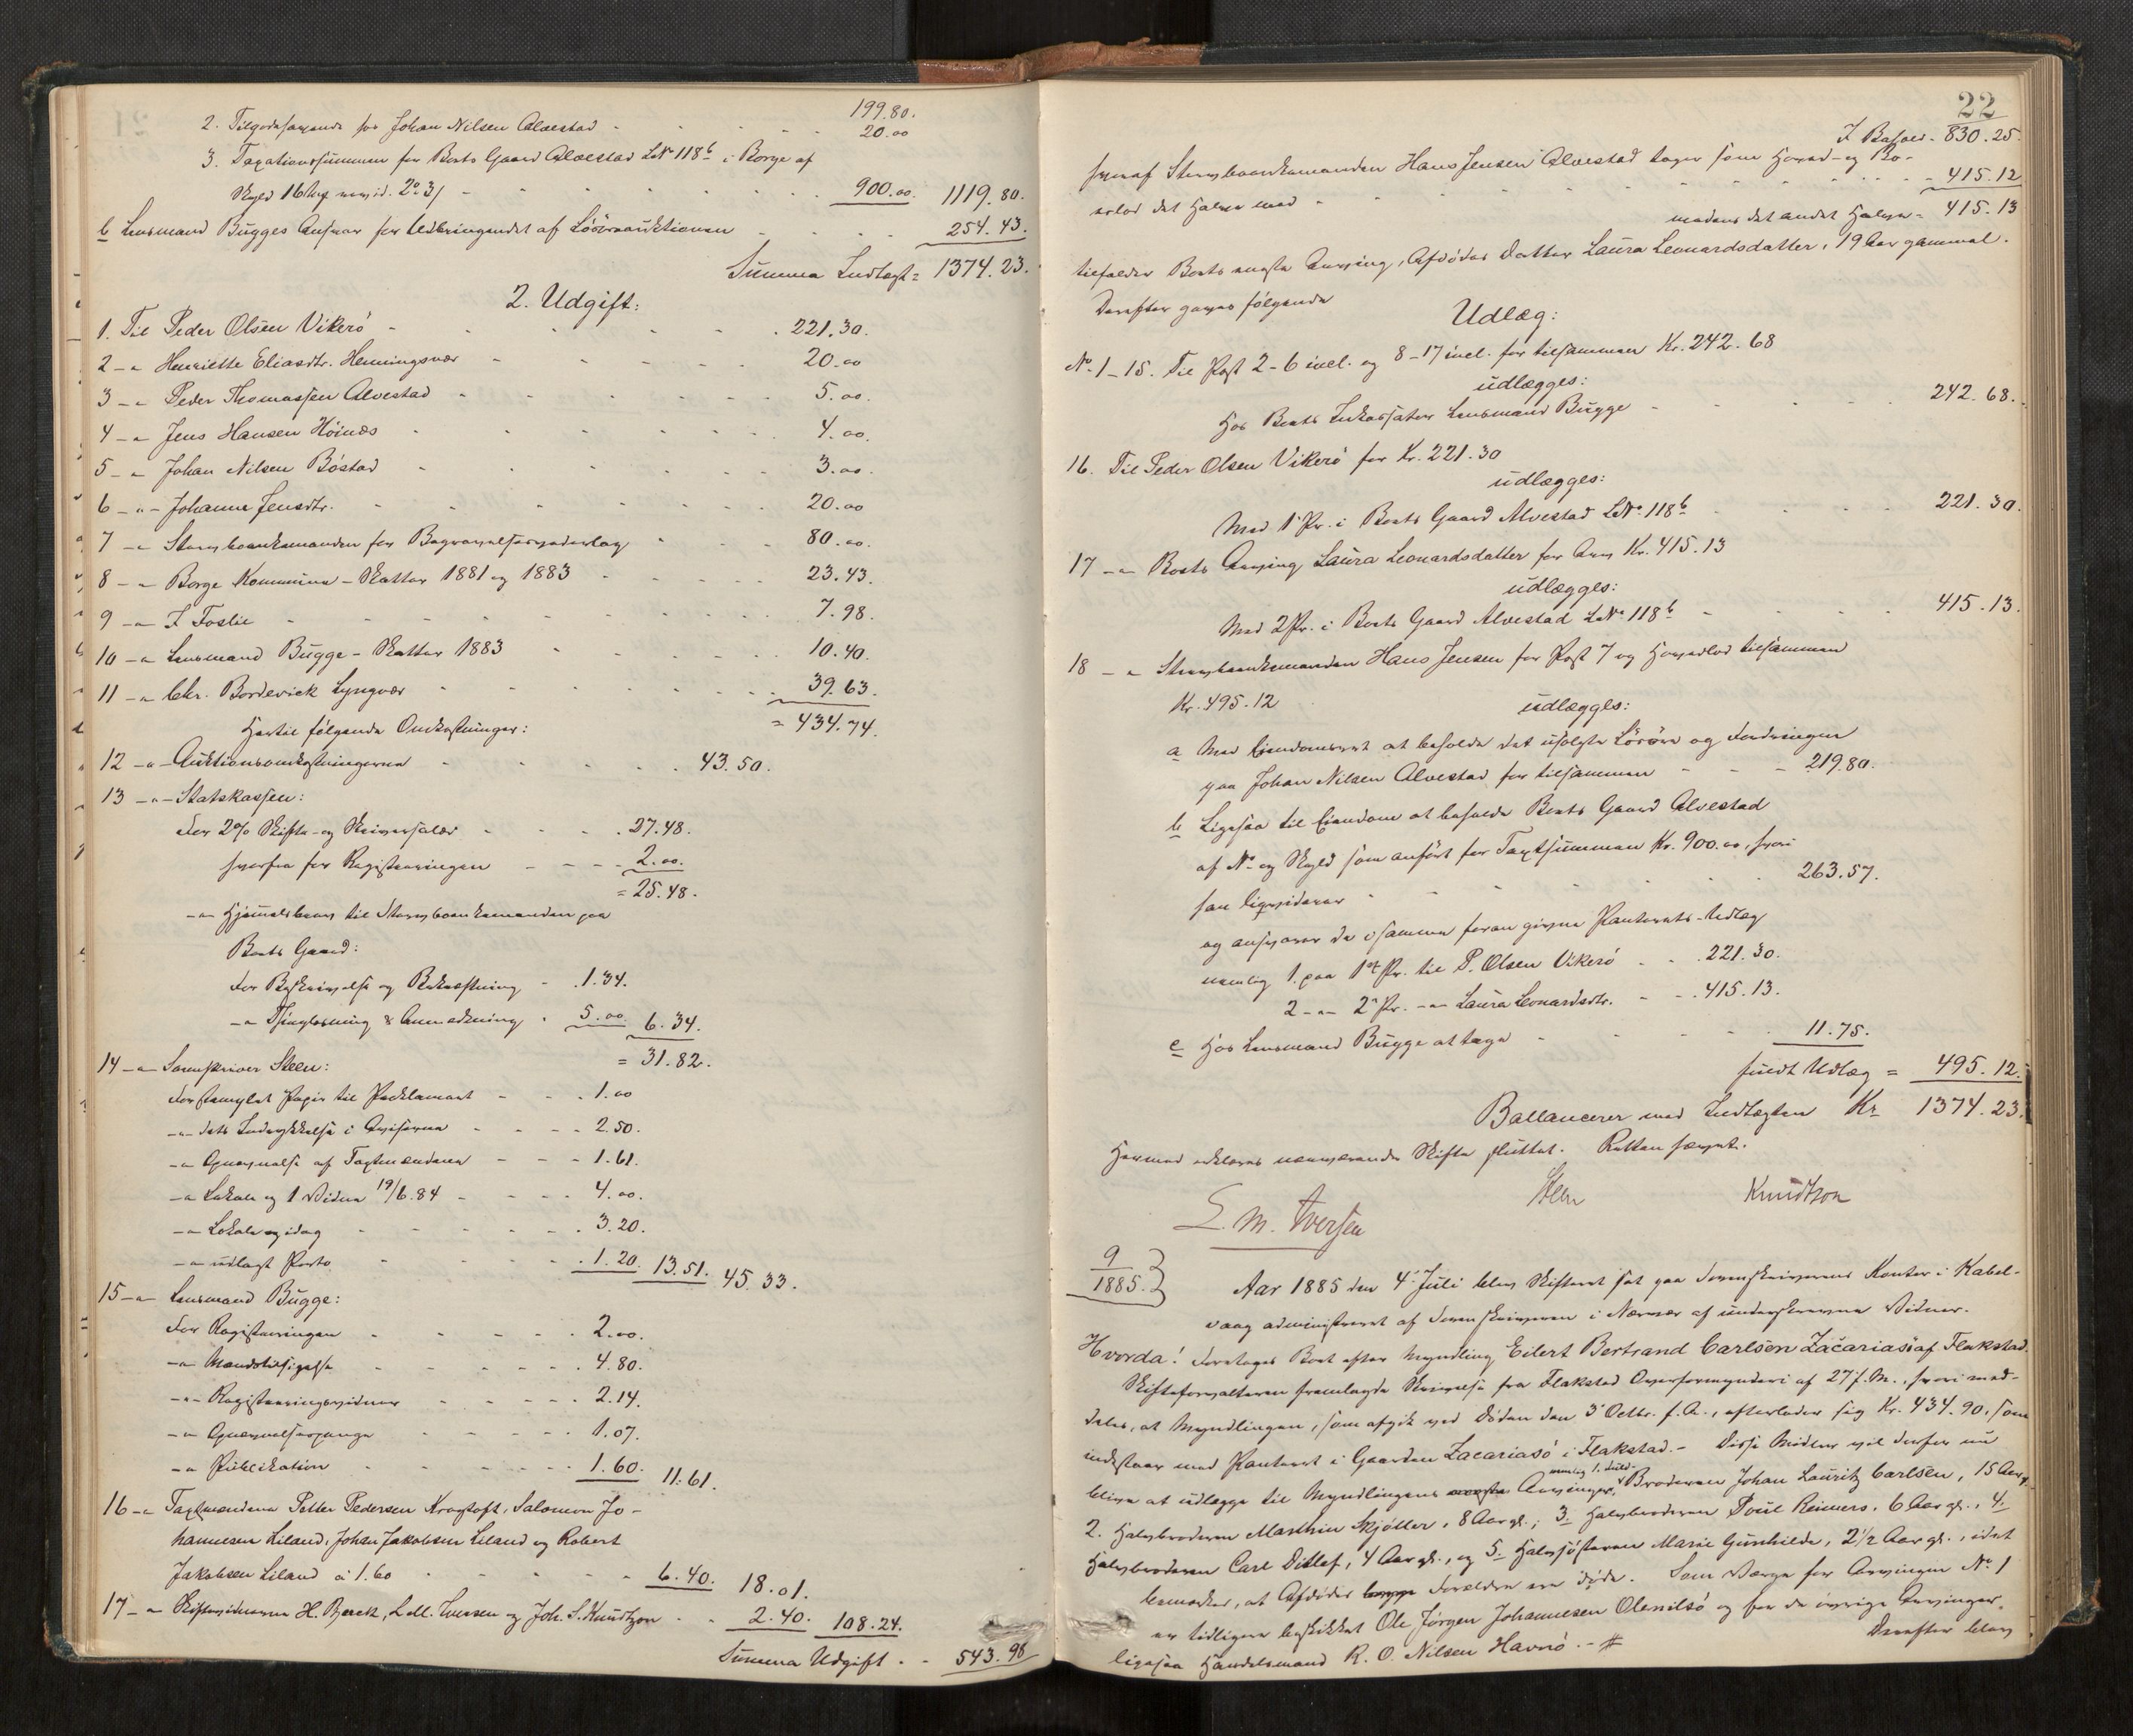 199.80.
2. Tilgodehavende hos Johan Nilsen Alvestad - 20.00
3. Taxationssummen for Boets Gaard Alvestad LNº 118b i Borge af
Skyld 16 revid. 2º 3/ - 900.00. 1119.80.
b Lensmand Bugges Ansvar for Udbringendet af Løsøreauktionen 254.43.
Summa Indtægt = 1374.23.
2. Udgift:
1. Til Peder Olsen Vikerø - 221.30.
2 -"- Henriette Eliasdtr. Henningsvær - 20.00
3 -"- Peder Thomassen Alvestad - 5.00.
4 -"- Jens Hansen Höinæs - 4.00.
5 -"- Johan Nilsen Böstad - 3.00.
6 -"- Johanna Jensdtr. - 20.00
7 -"- Stervboenkemanden for Begravelsesvederlag 80.00.
8 -"- Borge Kommune - Skatter 1881 og 1883 23.43.
9 -"- I Foslie - 7.98.
10 -"- Lensmand Bugge - Skatter 1883 10.40.
11 -"- Chr. Bordevick Lyngvær - 39.63.
Hertil følgende Omkostninger: = 434.74.
12 -"- Auktionsomkostningerne - 43.50.
13 -"- Statskassen:
For 2% Skifte- og Skriversalær - 27.48.
herfra for Registreringen - 2.00.
= 25.48.
-"- Hjemmelsbrev til Stervboenkemanden paa
Boets Gaard:
For Beskrivelse og Bekræftning - 1.34.
-"- Thinglæsning & Anmerkning - 5.00. 6.34.
= 31.82.
14 -"- Sorenskriver Steen:
For stemplet Papir til Proklamaet - 1.00
-"- dets Indrykkelse i Aviserne - 2.50.
-"- Opnævnelse af Taxtmændene - 1.61.
-"- Lokale og 1 Vidne 19/6.84 - 4.00.
-"- Lokale og idag - 3.20.
-"- udlagt Porto - 1.20. 13.51. 45.33.
15 -"- Lensmand Bugge:
For Registreringen - 2.00.
-"- Mændstilsigelse - 4.80.
-"- Registreringsvidner - 2.14.
-"- Opnævnelsespenge - 1.07.
-"- Publikation - 1.60. 11.61.
16 -"- Taxtmændene Petter Pedersen Kragtoft, Salomon Jo-
hannesen Liland, Johan Jakobsen Liland og Robert
Jakobsen Liland á 1.60 - 6.40. 18.01.
17 -"- Skiftevidnerne H. Bjerck, L. M. Iversen og Joh. S. Knudtzon - 2.40. 108.24.
Summa Udgift - 543.98
22
I Behold - 830.25.
hvoraf Stervboenkemanden Hans Jensen Alvestad tager som Hoved- og Bo-
eslod det Halve med - 415.12
medens det andet Halve = 415.13
tilfalder Boets eneste Arving, Afdødes Datter Laura Leonardsdatter, 19 Aar gammel.
Derefter gøres følgende
Udlæg:
Nº 1-15. Til Post 2-6 incl. og 8-17 incl. for tilsammen Kr. 242.68
udlægges:
Hos Boets Inkassator Lensmand Bugge - 242.68.
16. Til Peder Olsen Vikerø for Kr. 221.30
udlægges:
Med 1' Pr. i Boets Gaard Alvestad LNº 118b 221.30.
17 -"- Boets Arving Laura Leonardsdatter for Arv Kr. 415.13
udlægges:
Med 2 Pr. i Boets Gaard Alvestad LNº 118b - 415.13.
18 -"- Stervboenkemanden Hans Jensen for Post 7 og Hovedlod tilsammen
Kr. 495.12 udlægges:
a Med Eiendomsret at beholde det usolgte Løsøre og Fordringen
paa Johan Nilsen Alvestad for tilsammen - 219.80.
b Ligesaa til Eiendom at beholde Boets Gaard Alvestad
af Nº og Skyld som anført for Taxtsummen Kr. 900.00, hvori
han liqviderer - 263.57.
og ansvarer de i samme foran givne Panterets-Udlæg
nemlig 1. paa 1st Pr. til P. Olsen Vikerø - 221.30.
2 -"- 2' Pr. -"- Laura Leonardsdtr. - 415.13.
c Hos Lensmand Bugge at tage - 11.75.
fuldt Udlæg = 495.12.
Ballancerer med Indtægten Kr 1374.23.
Hermed erklæres nærværende Skifte sluttet. Retten hævet.
Steen Knudtzon
L. M. Iversen
9
1885.
Aar 1885 den 4' Juli blev Skifteret sat paa Sorenskriverens Kontor i Kabel-
vaag administreret af Sorenskriveren i Nærvær af underskrevne Vidner.
Hvorda! Foretoges Boet efter Myndling Eilert Bertrand Carlsen Zacariasø af Flakstad.
Skifteforvalteren fremlagde Skrivelse fra Flakstad Overformynderi af 27 f. M., hvori med-
deles, at Myndlingen, som afgik ved Døden den 3' Octbr. f. A., efterlader sig Kr. 434.90, som
indestaar mod Panteret i Gaarden Zacariasø i Flakstad. - Disse Midler vil derfor nu
nemlig 1. Fuld-
blive at udlægge til Myndlingens Arvinger, Broderen Johan Lauritz Carlsen, 15 Aar g.
2. Halvbroderen Marthin Skjølter, 8 Aar gl.; 3. Halvbroderen Poul Reimers, 6 Aar gl., 4.
Halvbroderen Carl Ditlef, 4 Aar gl., og 5. Halvsøsteren Marie Gunhilde, 2 1/2 Aar gl., idet
bemærkes, at Afdødes begge Forældre ere døde. Som Værge for Arvingen Nº 1
er tidligere beskikket Ole Jørgen Johannesen Olenilsø og for de øvrige Arvinger,
ligesaa Handelsmand R. O. Nilsen Havnø. - # Derefter blev